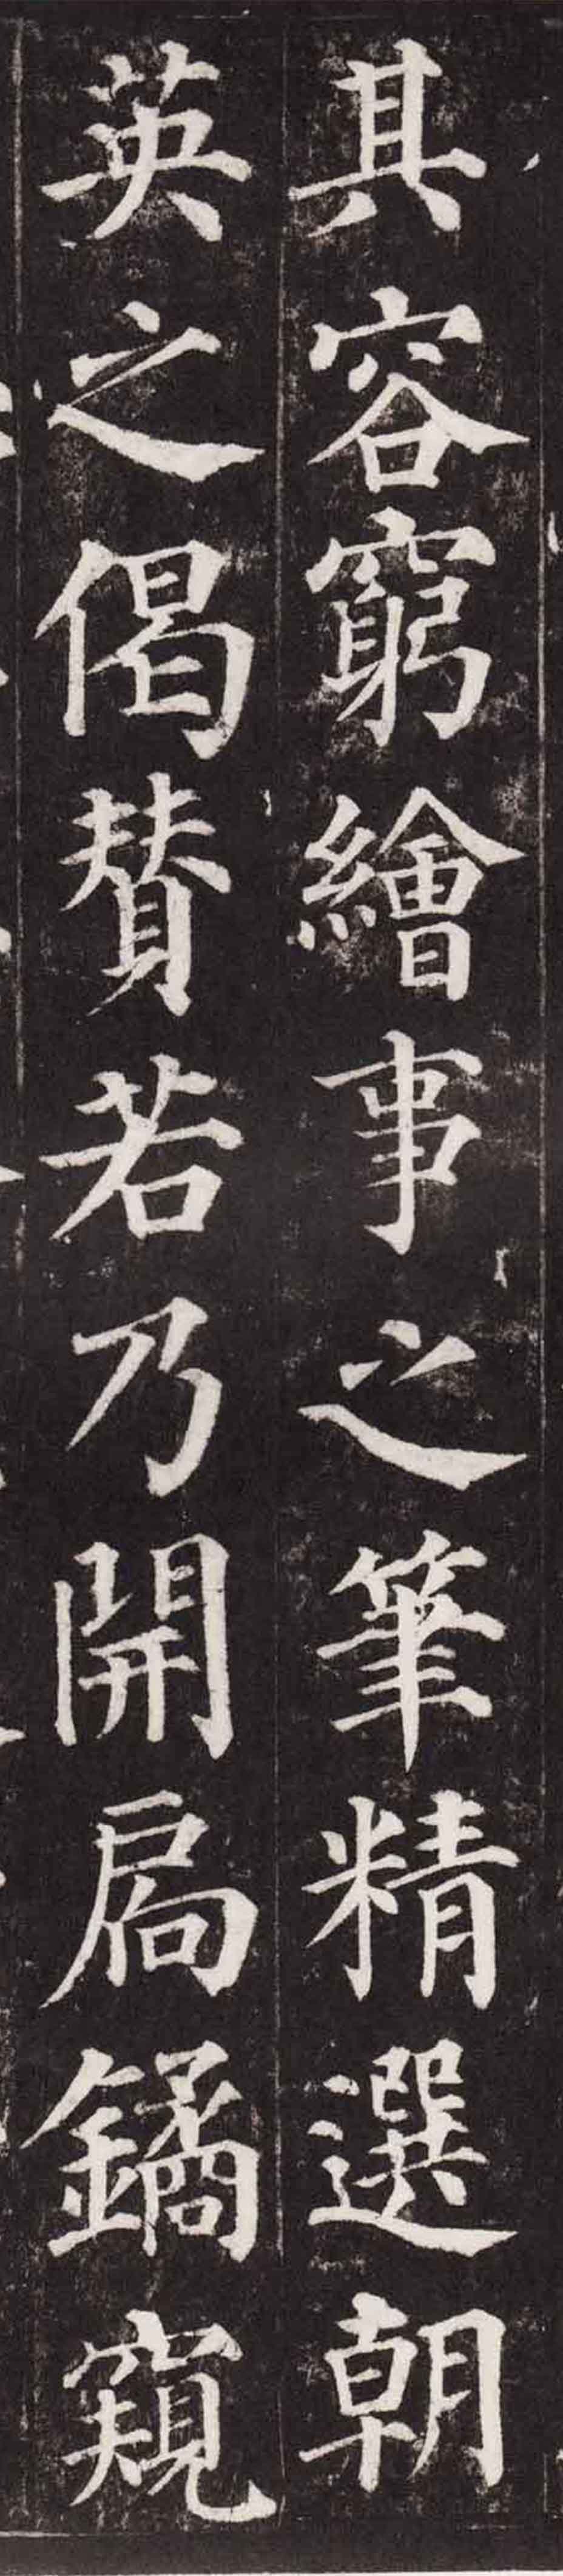 其容窮繪事之筆精選朝
英之偈贊若乃開扃鐍窺